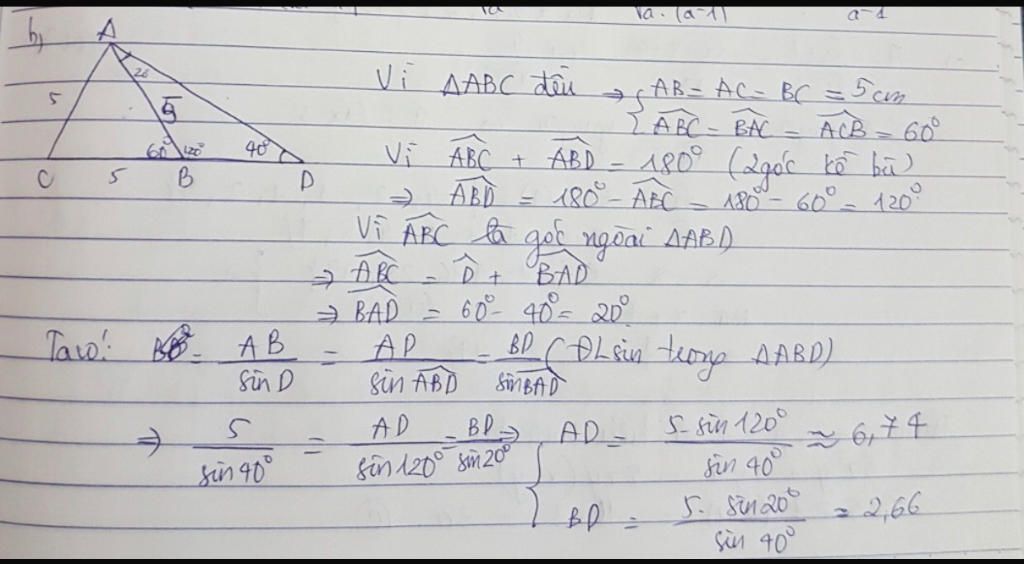 √a. (a-1) a-1
b,
A
20
5
5
60° 120° 40°
C 5 B D
Vì ΔABC đều ⇒ { AB = AC = BC = 5cm
{ ABC = BAC = ACB = 60°
Vì ABC + ABD = 180° (2 góc kề bù)
⇒ ABD = 180° - ABC = 180° - 60° = 120°
Vì ABC là góc ngoài ΔABD
⇒ ABC = D + BAD
⇒ BAD = 60° - 40° = 20°.
Ta có: AB/sin D = AD/sin ABD = BD/sin BAD (ĐL sin trong ΔABD)
⇒ 5/sin 40° = AD/sin 120° = BD/sin 20° ⇒ { AD = 5. sin 120°/sin 40° ≈ 6,74
{ BD = 5. sin 20°/sin 40° = 2,66